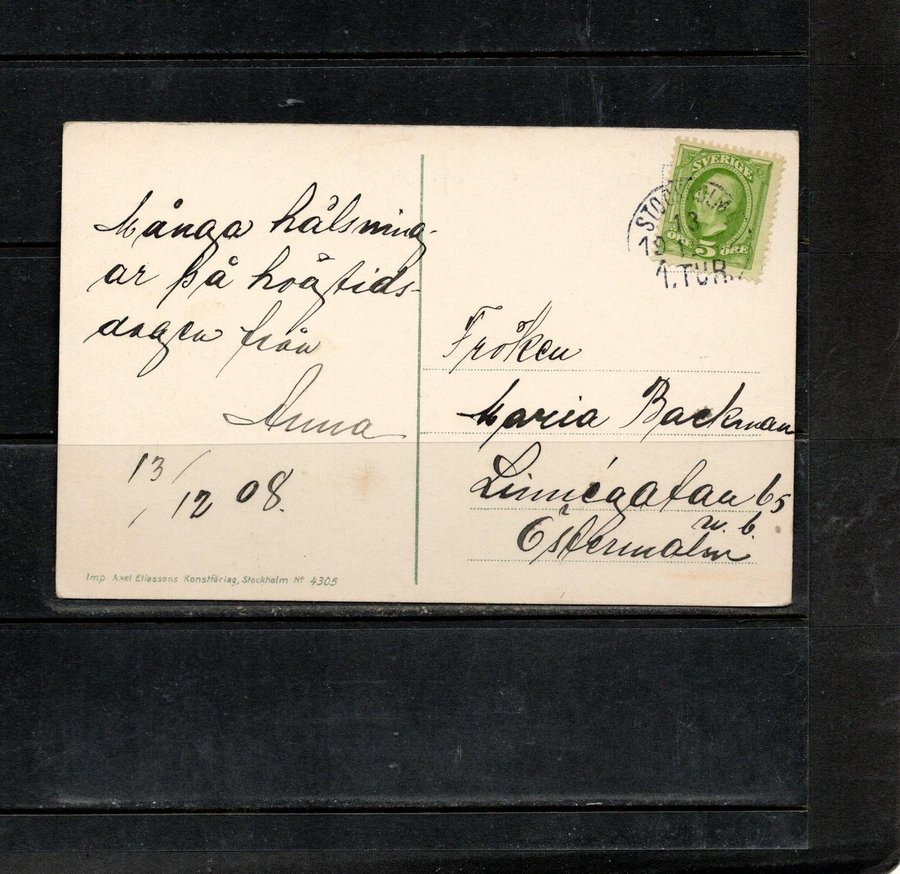 Många hälsning-
ar på högtids-
dagen från
Anna
13/12 08.
Imp. Axel Eliassons Konstförlag, Stockholm No 4305
SVERIGE
5 ÖRE
13
1. TUR.
Fröken
Maria Backman
Linnégatan 65
n. b.
Östermalm